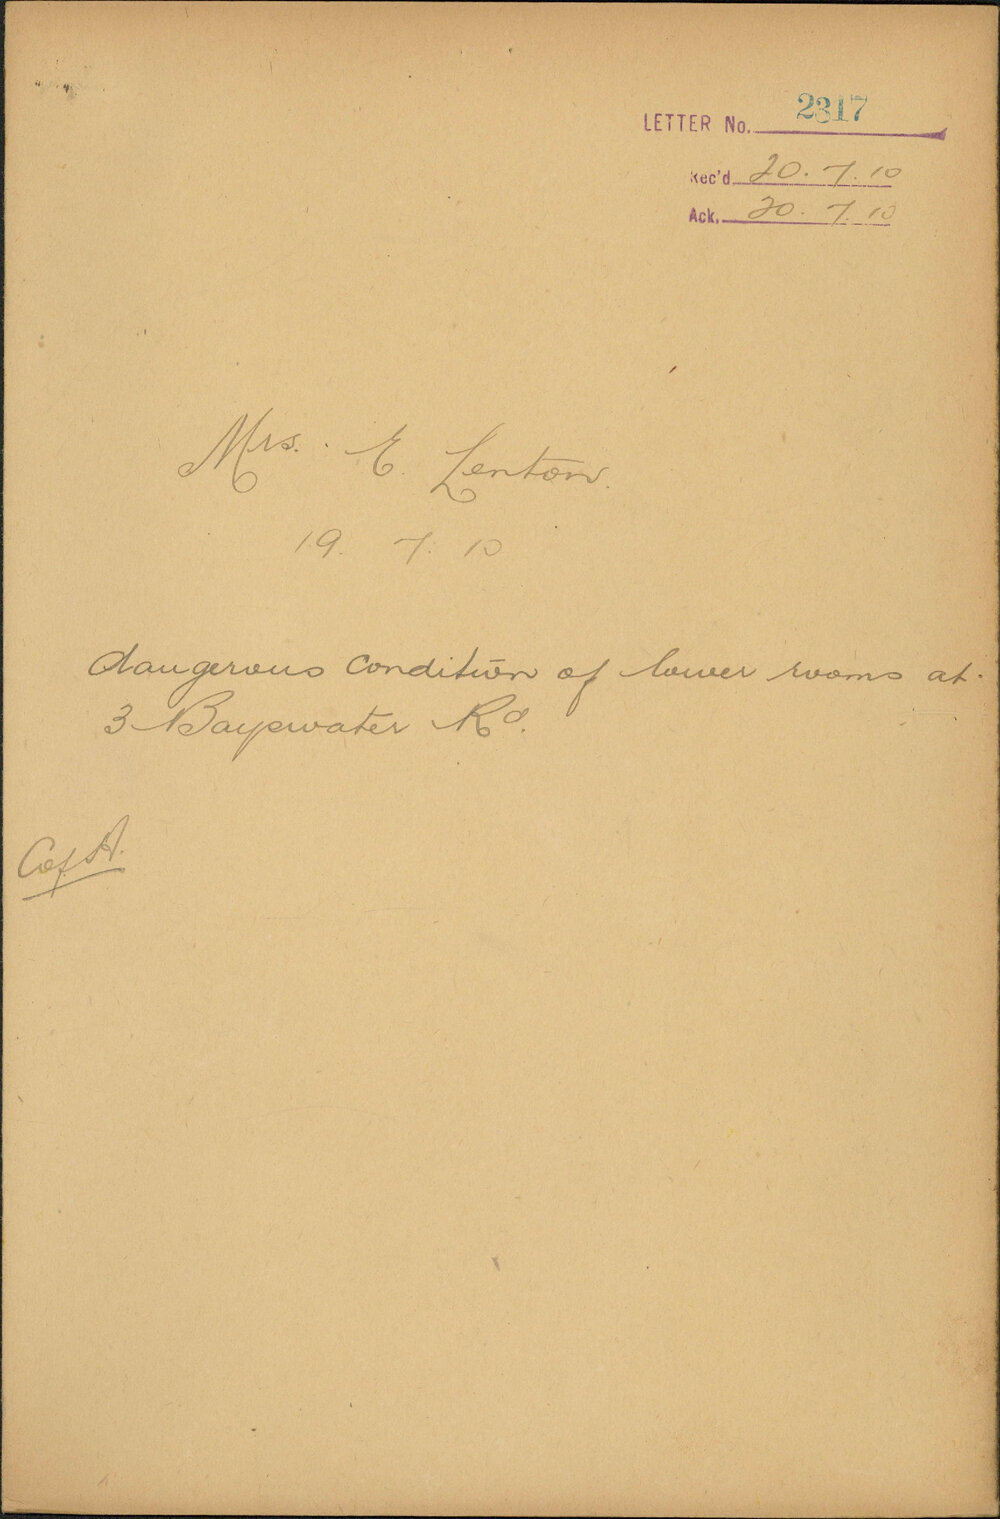 LETTER No. 2317
Rec'd 20. 7. 10
Ack. 20. 7. 10
Mrs. E. Lenton.
19. 7. 10
dangerous condition of lower rooms at
3 Bayswater Rd.
C of A.